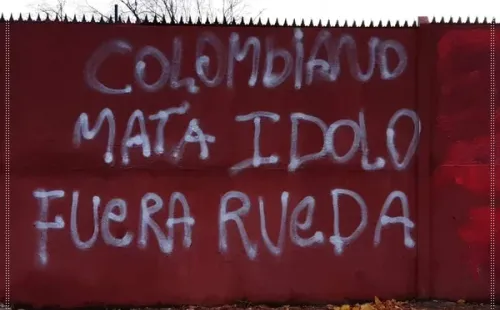 COLOMBIANO
MATA IDOLO
FUERA RUEDA